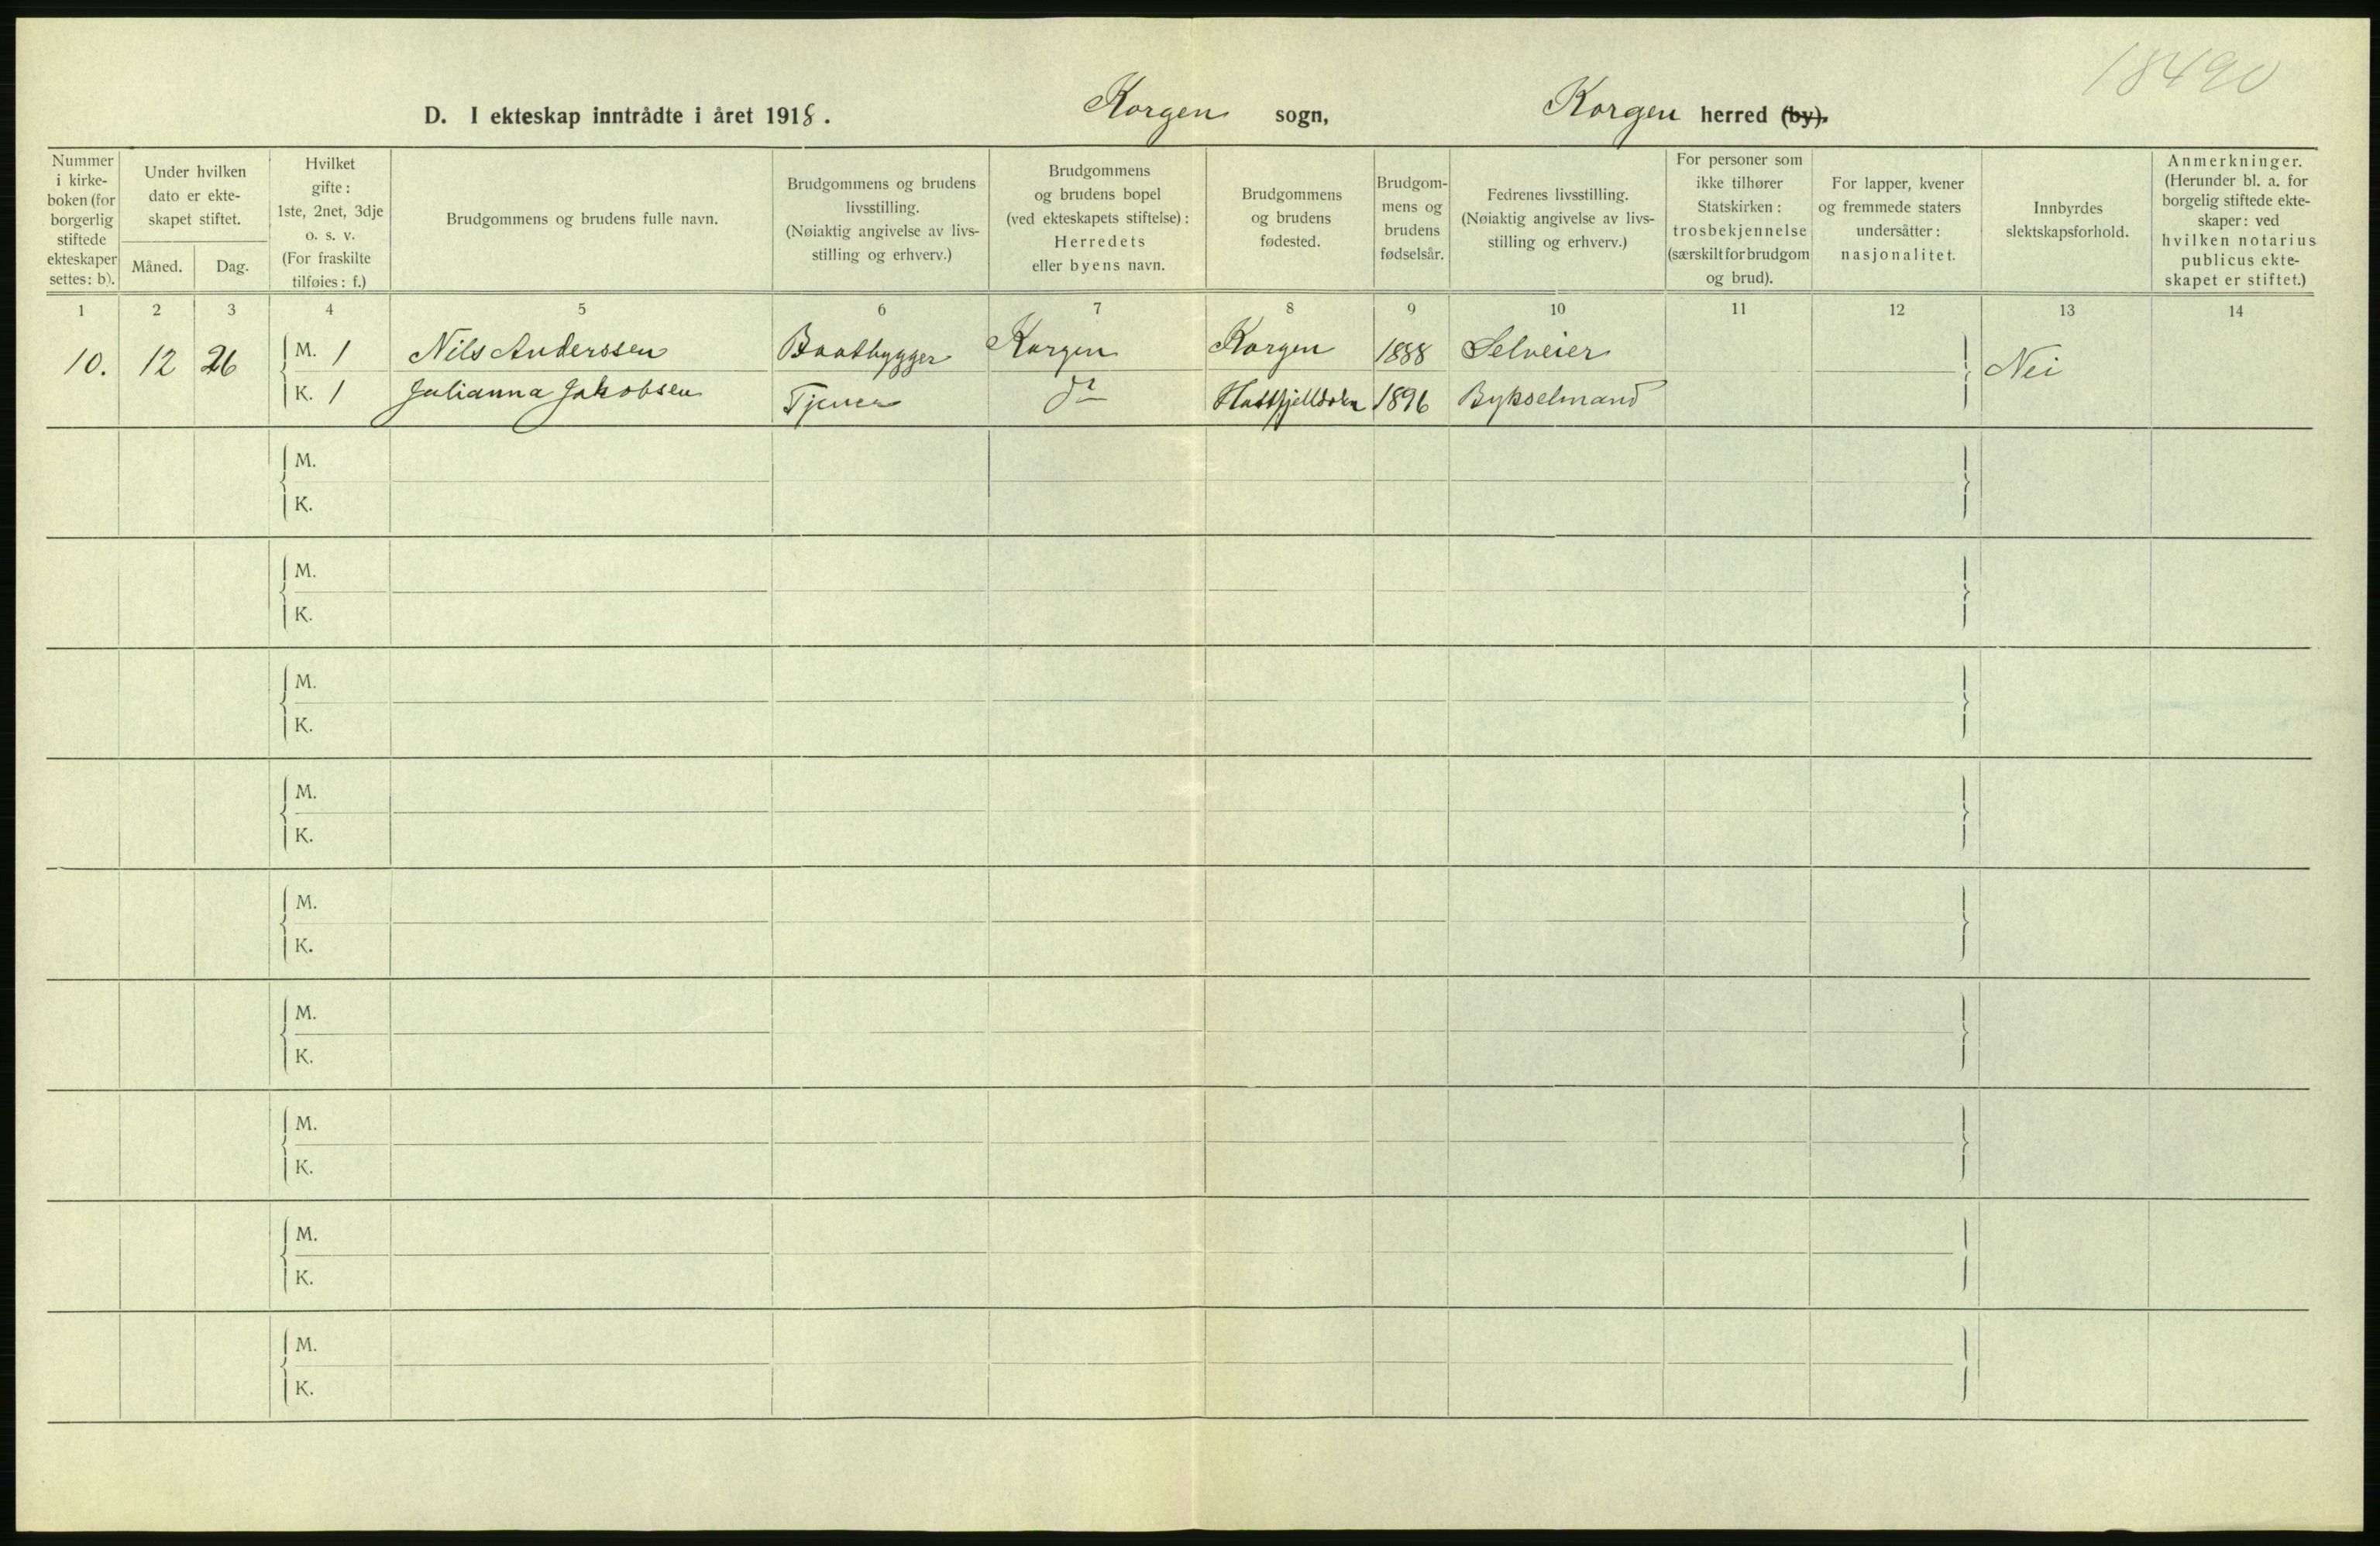 18490
D. I ekteskap inntrådte i året 1918. Korgen sogn, Korgen herred (by).
Nummer i kirke-boken (for borgerlig stiftede ekteskaper settes: b).
Under hvilken dato er ekte-skapet stiftet.
Måned. Dag.
Hvilket gifte: 1ste, 2net, 3dje o. s. v. (For fraskilte tilføies: f.)
Brudgommens og brudens fulle navn.
Brudgommens og brudens livsstilling. (Nøiaktig angivelse av livs-stilling og erhverv.)
Brudgommens og brudens bopel (ved ekteskapets stiftelse): Herredets eller byens navn.
Brudgommens og brudens fødested.
Brudgom-mens og brudens fødselsår.
Fedrenes livsstilling. (Nøiaktig angivelse av livs-stilling og erhverv.)
For personer som ikke tilhører Statskirken: trosbekjennelse (særskilt for brudgom og brud).
For lapper, kvener og fremmede staters undersåtter: nasjonalitet.
Innbyrdes slektskapsforhold.
Anmerkninger. (Herunder bl. a. for borgelig stiftede ekte-skaper: ved hvilken notarius publicus ekte-skapet er stiftet.)
1 2 3 4 5 6 7 8 9 10 11 12 13 14
10. 12 26 M. 1 Nils Anderssen Baatbygger Korgen Korgen 1888 Selveier Nei
K. 1 Julianna Jakobsen Tjener do Hattfjelldalen 1896 Bykselmand
M.
K.
M.
K.
M.
K.
M.
K.
M.
K.
M.
K.
M.
K.
M.
K.
M.
K.